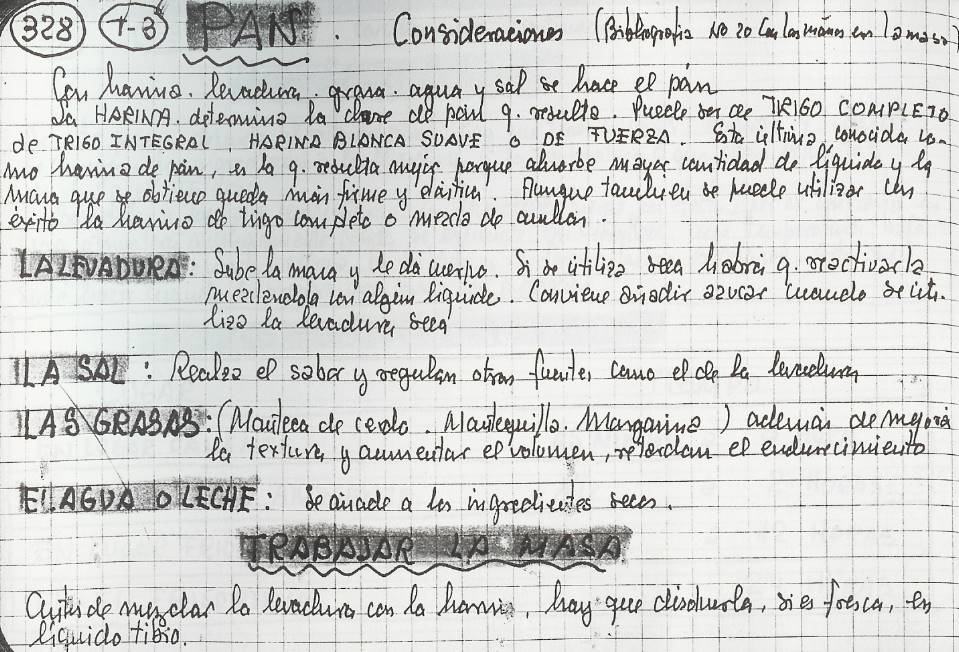 328 T-3 PAN. Consideraciones (Bibliografia No 20 Con las manos en la masa)
Con harina. levadura. grasa. agua y sal se hace el pan
La HARINA. determina la clase de pan q. resulta. Puede ser de TRIGO COMPLETO
de TRIGO INTEGRAL, HARINA BLANCA SUAVE o DE FUERZA. Esta ultima, conocida co-
mo harina de pan, es la q. resulta mejor porque absorbe mayor cantidad de liquido y la
masa que se obtiene queda más firme y elástica. Aunque tambien se puede utilizar con
exito la harina de trigo completo o mezcla de ambas.
LA LEVADURA: Sube la masa y le da cuerpo. Si se utiliza seca habrá q. reactivarla
mezclandola con algún liquido. Conviene añadir azucar cuando se uti-
liza la levadura seca
LA SAL: Realza el sabor y regulan otras fuentes como el de la levadura
LAS GRASAS: (Manteca de cerdo. Mantequilla. Margarina) además de mejorar
la textura y aumentar el volumen, retardan el endurecimiento
EL AGUA O LECHE: Se añade a los ingredientes secos.
TRABAJAR LA MASA
Antes de mezclar la levadura con la harina, hay que disolverla, si es fresca, en
liquido tibio.